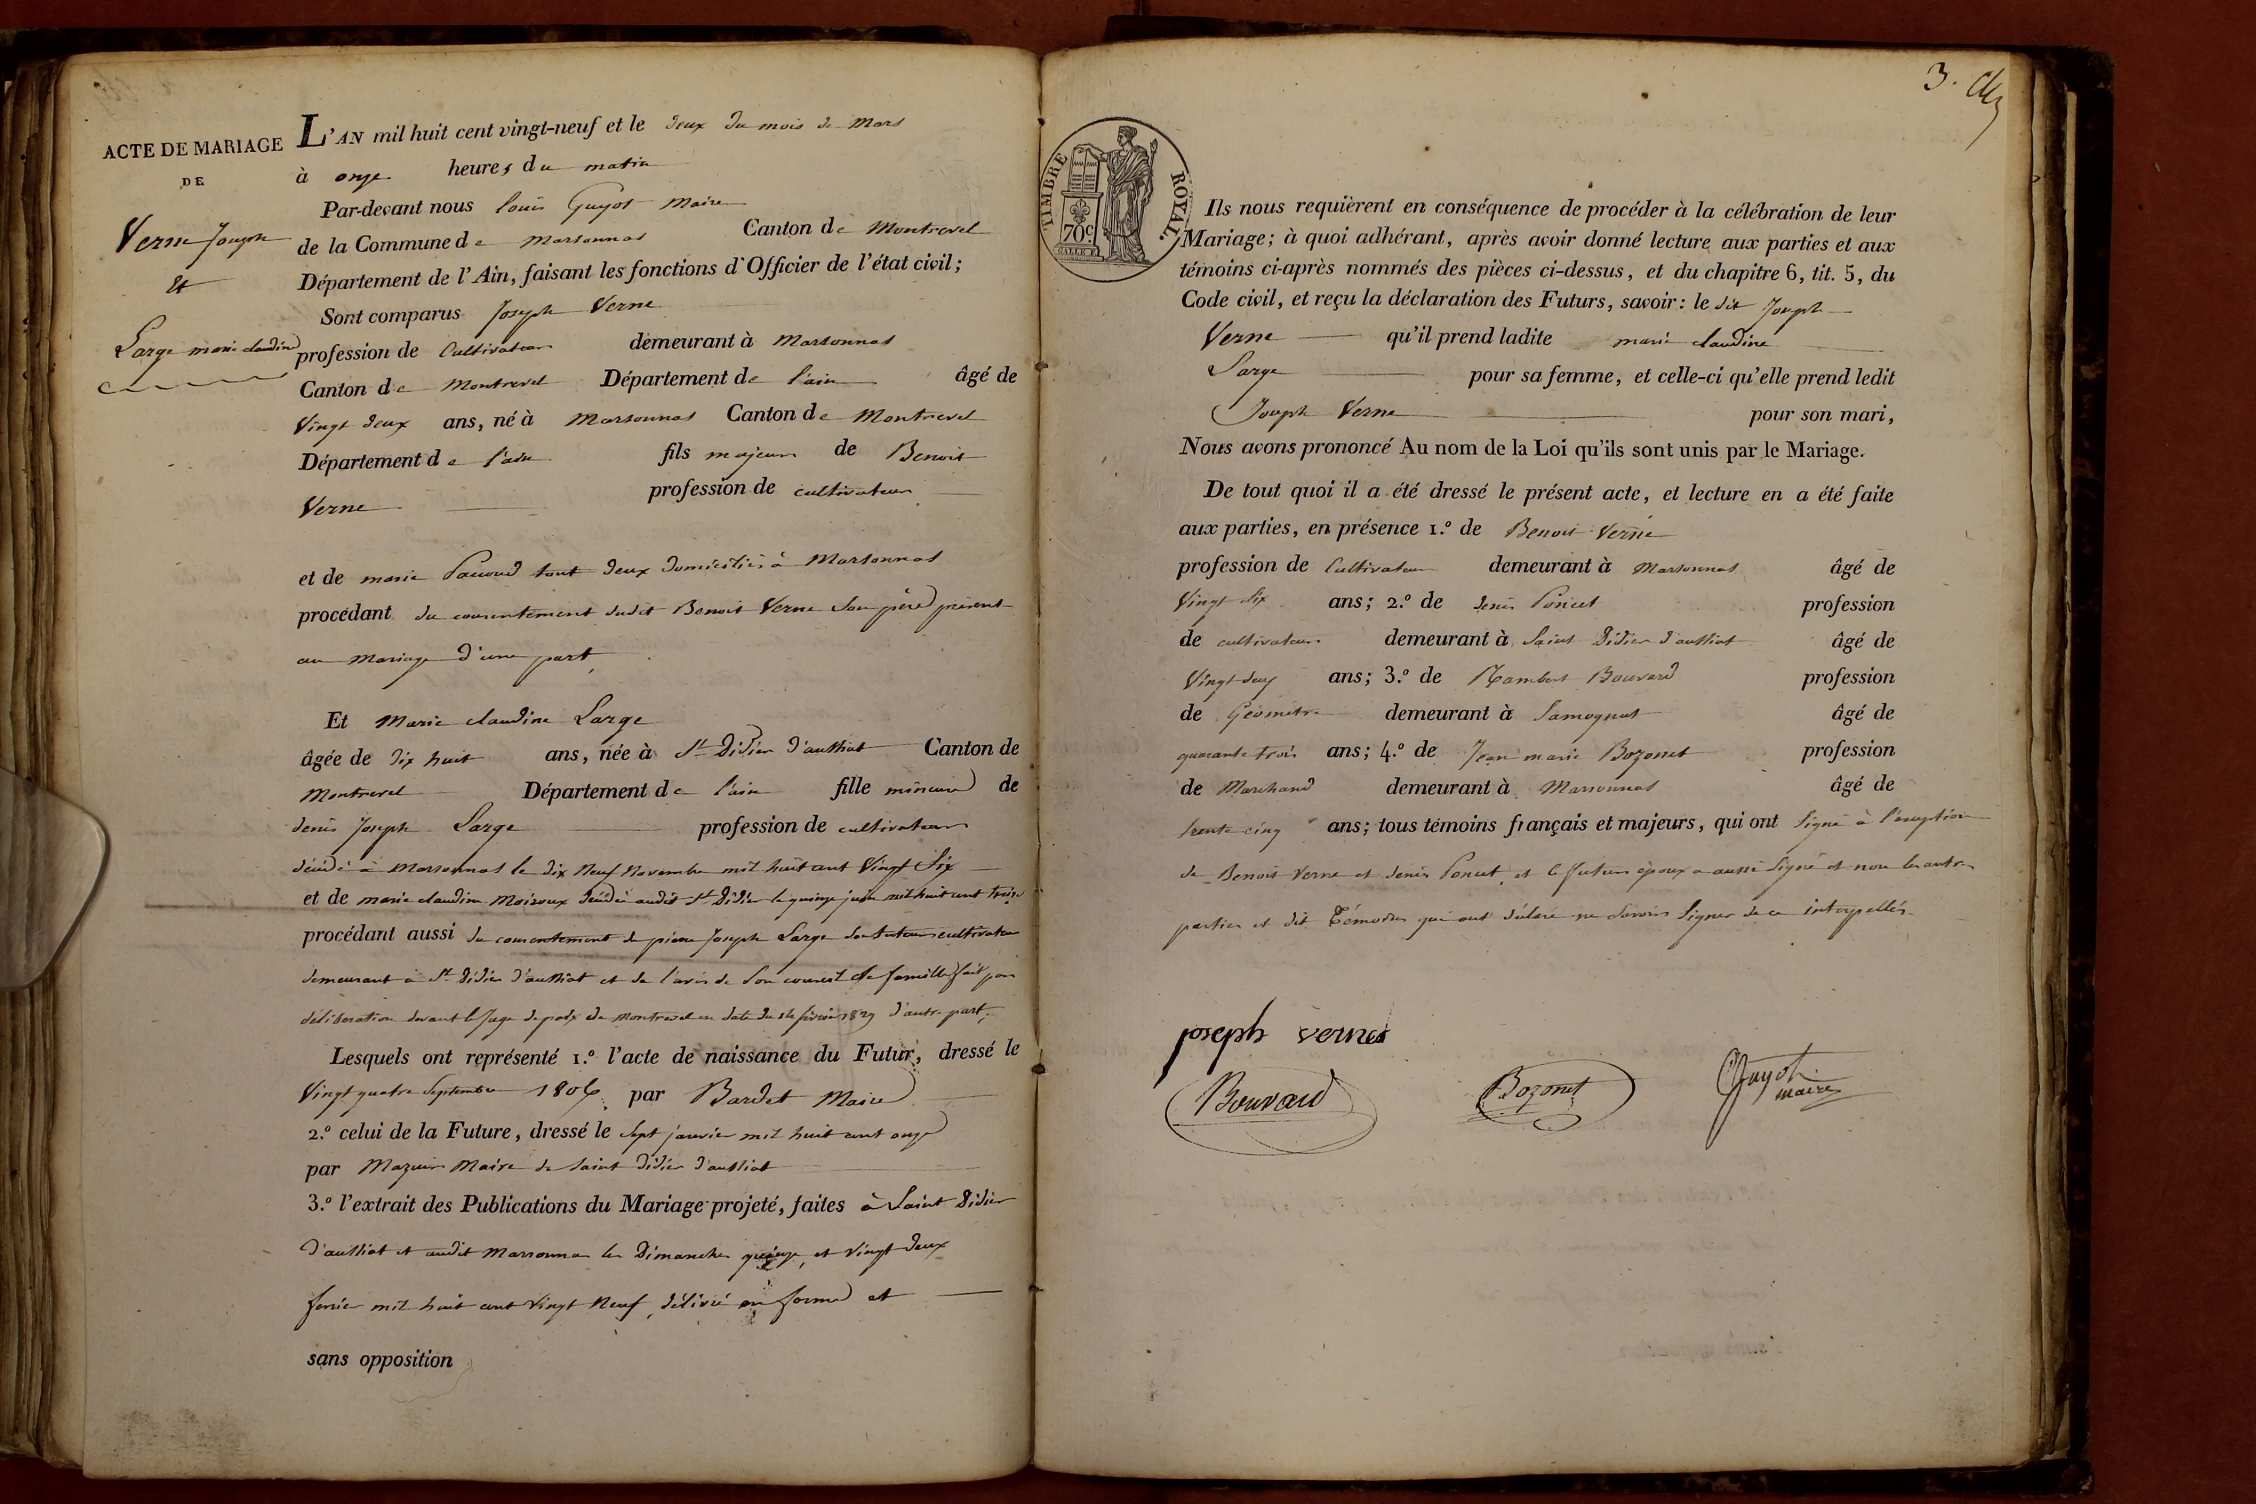 ACTE DE MARIAGE
DE
Verne Joseph
et
Large marie claudine
L'AN mil huit cent vingt-neuf et le deux du mois de Mars
à onze heures du matin
Par-devant nous louis Guyot Maire
de la Commune de Marsonnas Canton de Montrevel
Département de l'Ain, faisant les fonctions d'Officier de l'état civil;
Sont comparus Joseph Verne
profession de Cultivateur demeurant à Marsonnas
Canton de Montrevel Département de l'ain âgé de
Vingt deux ans, né à Marsonnas Canton de Montrevel
Département de l'ain fils majeur de Benoit
Verne profession de cultivateur
et de marie Pauoud tout deux domiciliés à Marsonnas
procédant du consentement dudit Benoit Verne son père présent
au Mariage d'une part
Et Marie claudine Large
âgée de dix huit ans, née à St Didier d'aussiat Canton de
Montrevel Département de l'ain fille mineure de
denis Joseph Large profession de cultivateur
décédé à Marsonnas le dix Neuf Novembre mil huit cent Vingt Six
et de marie claudine Moiroux décédé audit St Didier le quinze juin mil huit cent treize
procédant aussi du consentement de pierre Joseph Large son tuteur cultivateur
demeurant à St Didier d'aussiat et de l'avis de son conseil de famille fait par
délibération devant le Juge de paix de Montrevel en date du 14 février 1829 d'autre part;
Lesquels ont représenté 1.º l'acte de naissance du Futur, dressé le
Vingt quatre Septembre 1806 par Bardet Maire
2.º celui de la Future, dressé le sept janvier mil huit cent onze
par Mazuir Maire de Saint Didier d'aussiat
3.º l'extrait des Publications du Mariage projeté, faites à Saint Didier
d'aussiat et audit Marsonnas les Dimanches quinze et vingt deux
février mil huit cent Vingt Neuf, délivré en forme et
sans opposition
3.
TIMBRE ROYAL.
70c
Ils nous requièrent en conséquence de procéder à la célébration de leur
Mariage; à quoi adhérant, après avoir donné lecture aux parties et aux
témoins ci-après nommés des pièces ci-dessus, et du chapitre 6, tit. 5, du
Code civil, et reçu la déclaration des Futurs, savoir: le dit Joseph
Verne qu'il prend ladite marie claudine
Large pour sa femme, et celle-ci qu'elle prend ledit
Joseph Verne pour son mari,
Nous avons prononcé Au nom de la Loi qu'ils sont unis par le Mariage.
De tout quoi il a été dressé le présent acte, et lecture en a été faite
aux parties, en présence 1.º de Benoit Verne
profession de Cultivateur demeurant à Marsonnas âgé de
Vingt Six ans; 2.º de denis Poncet profession
de cultivateur demeurant à Saint Didier d'aussiat âgé de
Vingt deux ans; 3.º de Rambert Bouvard profession
de Géomètre demeurant à Samognat âgé de
quarante trois ans; 4.º de Jean marie Bozonet profession
de Marchand demeurant à Marsonnas âgé de
trente cinq ans; tous témoins français et majeurs, qui ont Signé à l'exception
de Benoit Verne et denis Poncet, et le futur époux a aussi Signé et non les autres
parties et dit Témoins qui ont déclaré ne Savoir Signer de ce interpellés
joseph verne
Bouvard
Bozonet
Guyot
maire